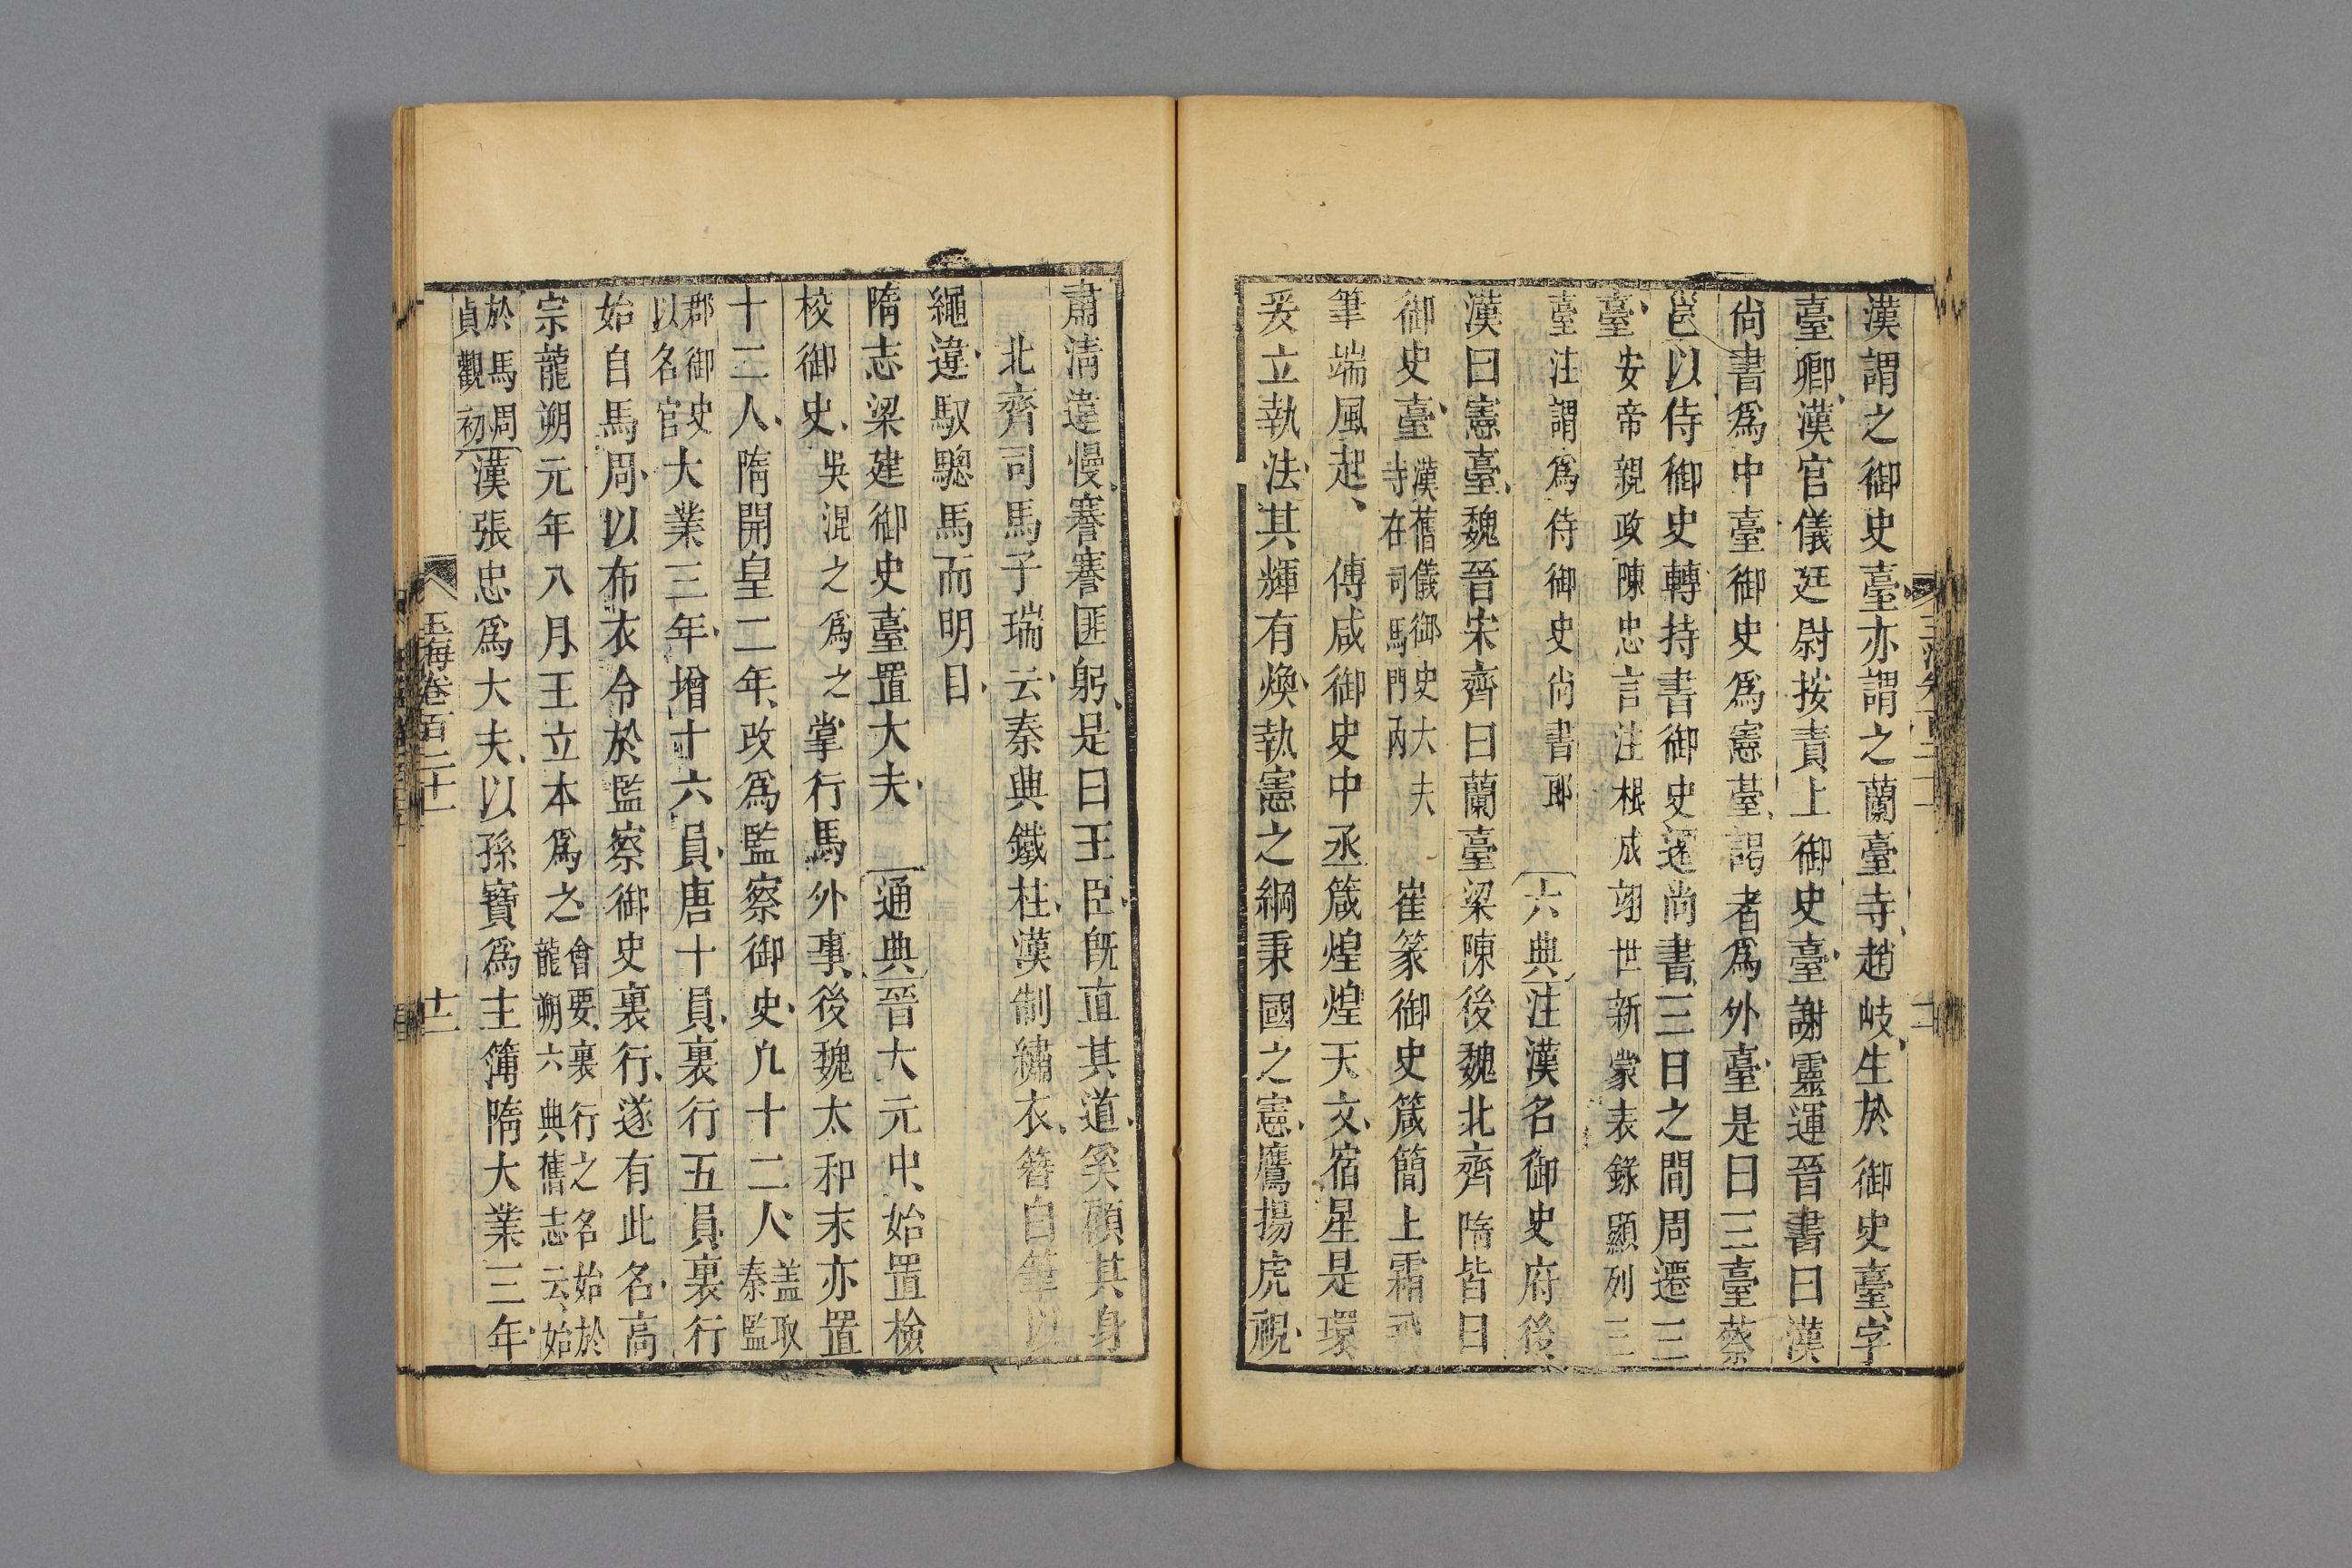 漢謂之御史臺亦謂之蘭臺寺趙岐生於御史臺字
臺卿漢官儀廷尉按責上御史臺謝靈運晉書曰漢
尚書爲中臺御史爲憲臺謁者爲外臺是曰三臺蔡
邕以侍御史轉持書御史遷尚書三日之間周遷三
臺安帝親政陳忠言注根成翊世新蒙表錄顯列三
臺注謂爲侍御史尚書郎 六典注漢名御史府後
漢曰憲臺魏晉宋齊曰蘭臺梁陳後魏北齊隋皆曰
御史臺漢舊儀御史大夫寺在司馬門內 崔篆御史箴簡上霜
筆端風起 傅咸御史中丞箴煌煌天文宿星是環
爰立執法其輝有煥執憲之綱秉國之憲鷹揚虎視
肅清違慢謇謇匪躬是曰王臣旣直其道奚顧其身
北齊司馬子瑞云秦典鐵柱漢制繡衣簪自筆以
繩違馭驄馬而明目
隋志梁建御史臺置大夫 通典晉太元中始置檢
校御史吳混之爲之掌行馬外事後魏太和末亦置
十二人隋開皇二年改爲監察御史凡十二人盖取秦監
郡御史以名官大業三年增十六員唐十員裏行五員裏行
始自馬周以布衣令於監察御史裏行遂有此名高
宗龍朔元年八月王立本爲之會要裏行之名始於龍朔六典舊志云始
於馬周貞觀初漢張忠爲大夫以孫寶爲主簿隋大業三年
玉海卷百二十一
十二